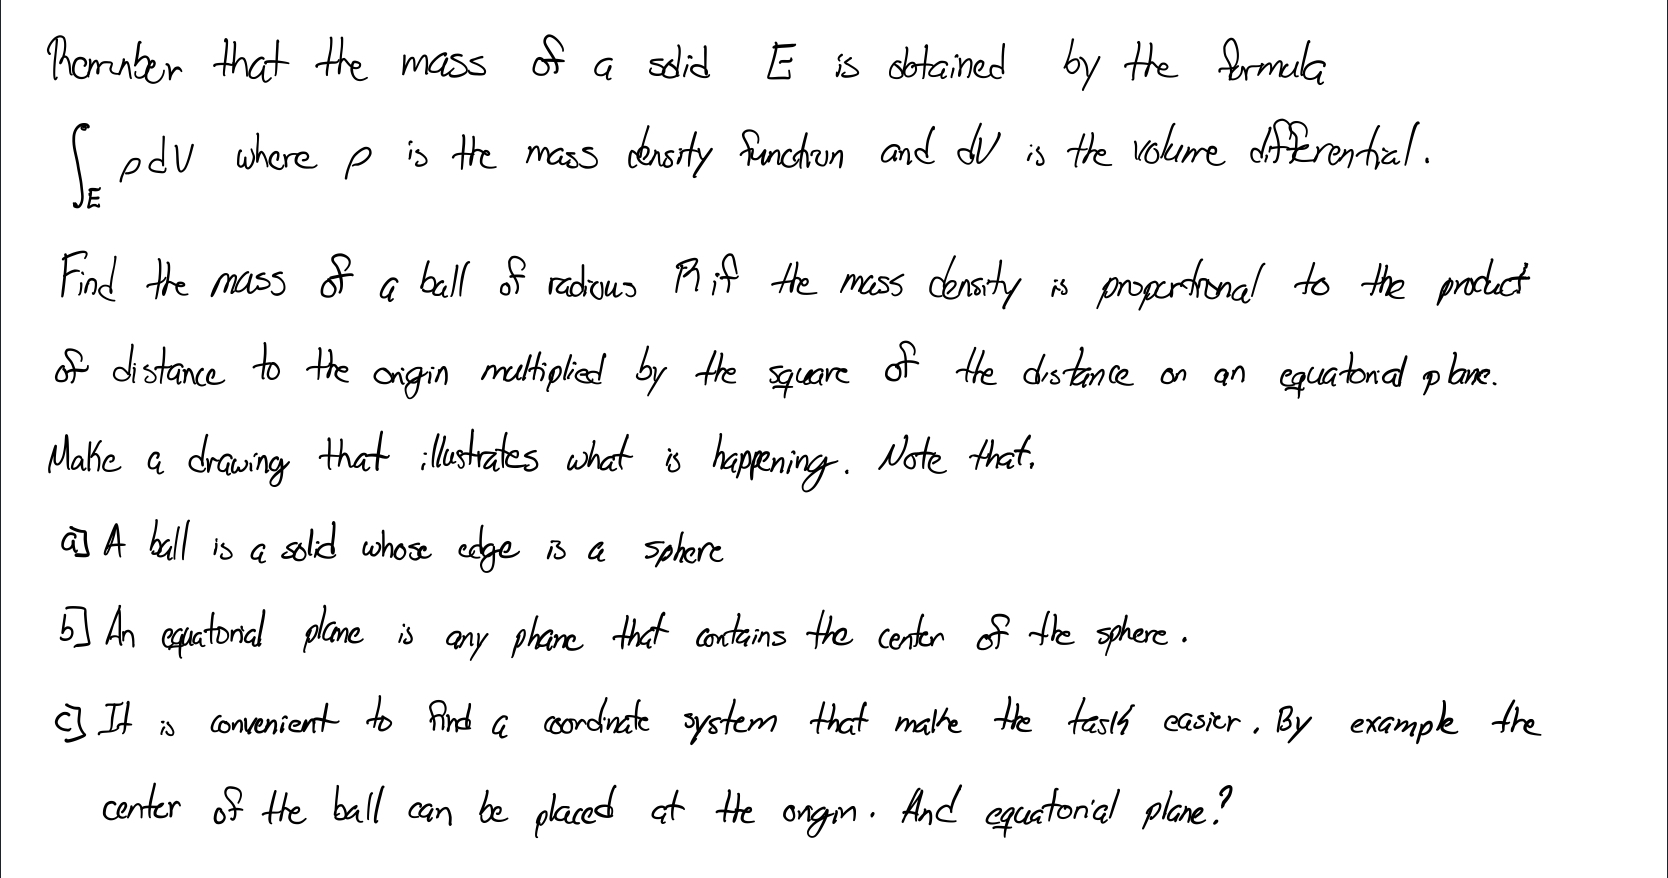 Remember that the mass of a solid E is obtained by the formula
∫_E ρdV where ρ is the mass density function and dV is the volume differential.
Find the mass of a ball of radious R if the mass density is proportional to the product
of distance to the origin multiplied by the square of the distance on an equatorial plane.
Make a drawing that illustrates what is happening. Note that.
a] A ball is a solid whose edge is a sphere
b] An equatorial plane is any phane that contains the center of the sphere.
c] It is convenient to find a coordinate system that make the task easier. By example the
center of the ball can be placed at the origin. And equatorial plane?